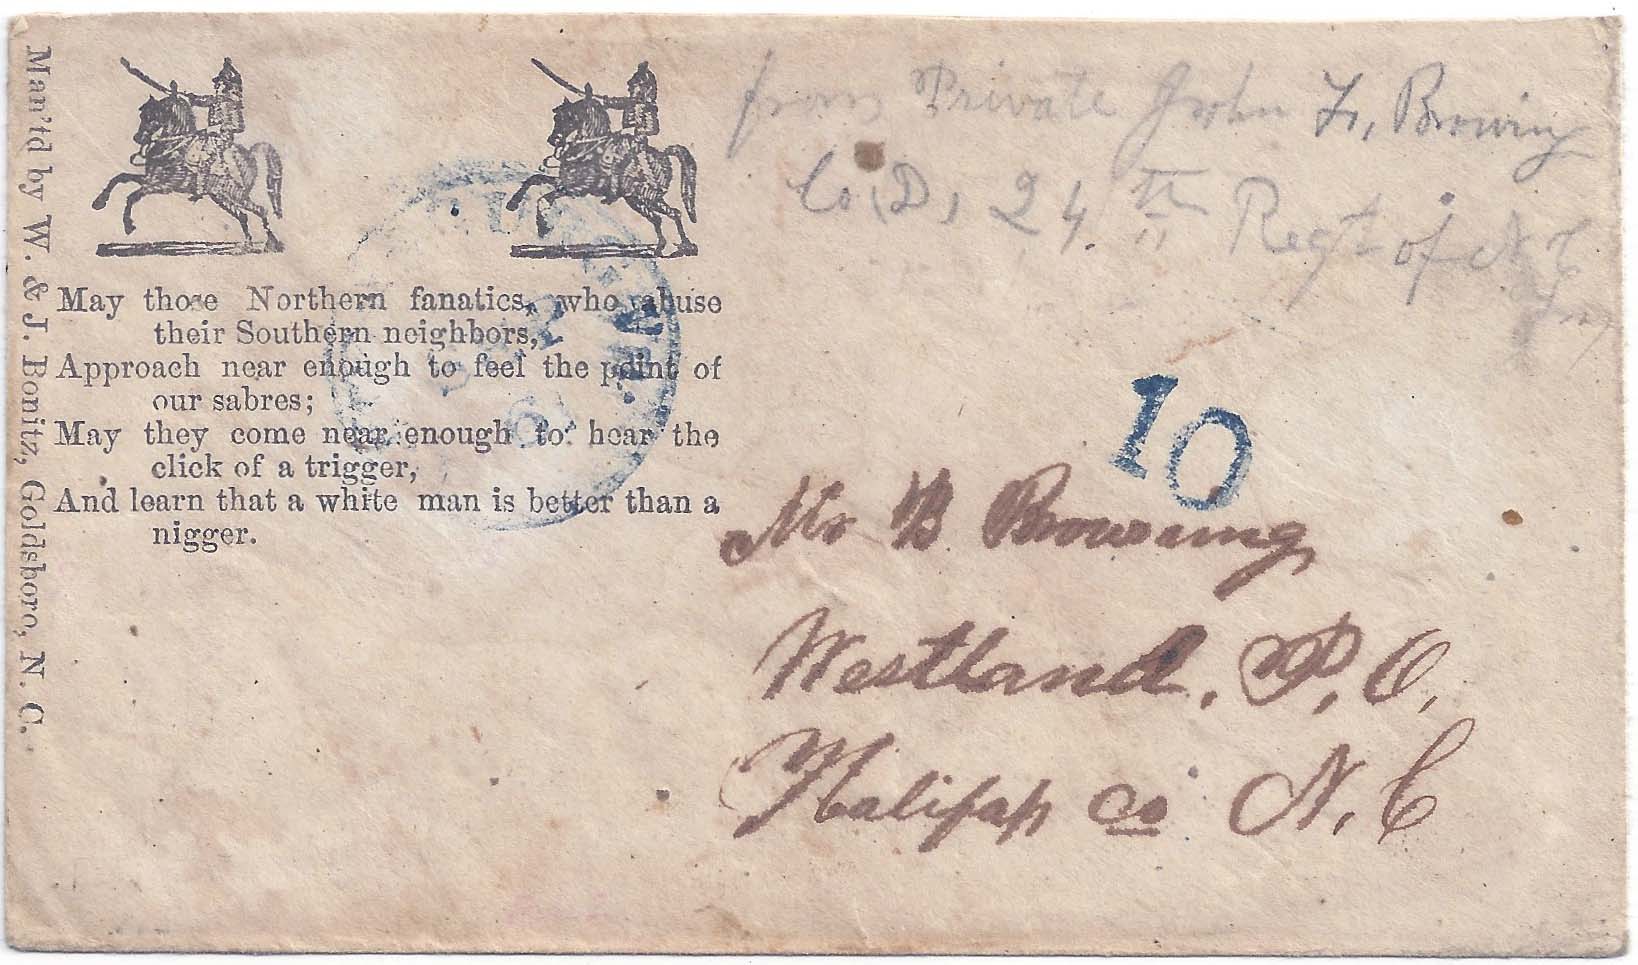 Man'td by W. & J. Bonitz, Goldsboro, N. C.
May those Northern fanatics, who abuse
their Southern neighbors,
Approach near enough to feel the point of
our sabres;
May they come near enough to hear the
click of a trigger,
And learn that a white man is better than a
nigger.
from Private John Browing
Co D, 24th Regt of N C
10
Mr B Browning
Westland, P, O,
Halifax co N, C